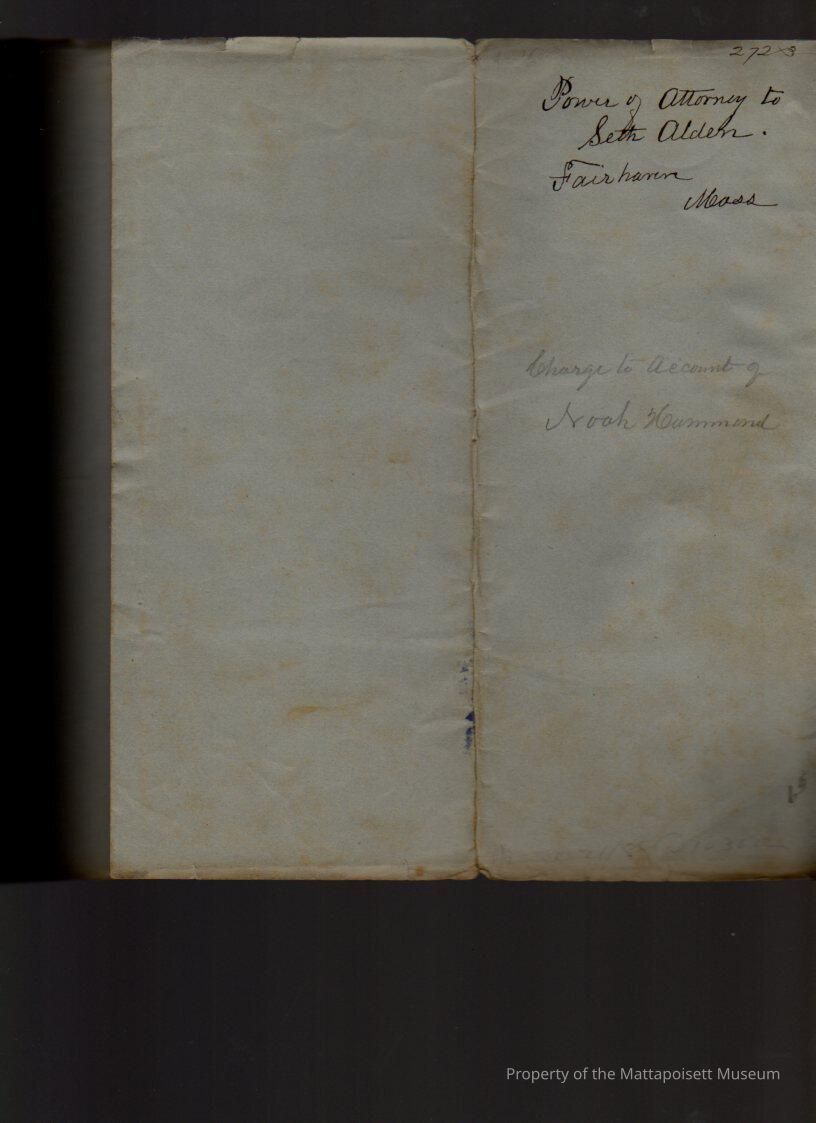 272-3
Power of Attorney to
Seth Alden.
Fairhaven
Mass
Charge to Account of
Noah Hammond
Property of the Mattapoisett Museum